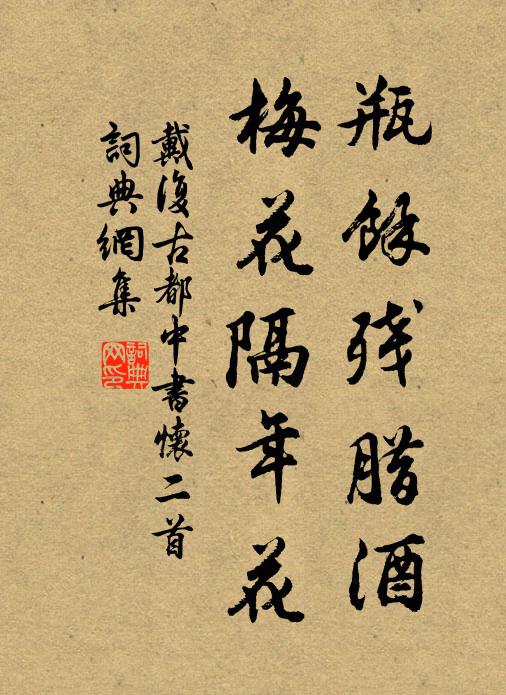 瓶餘残腊酒
梅花隔年花
戴復古都中書懷二首
詞典網集
詞典网印